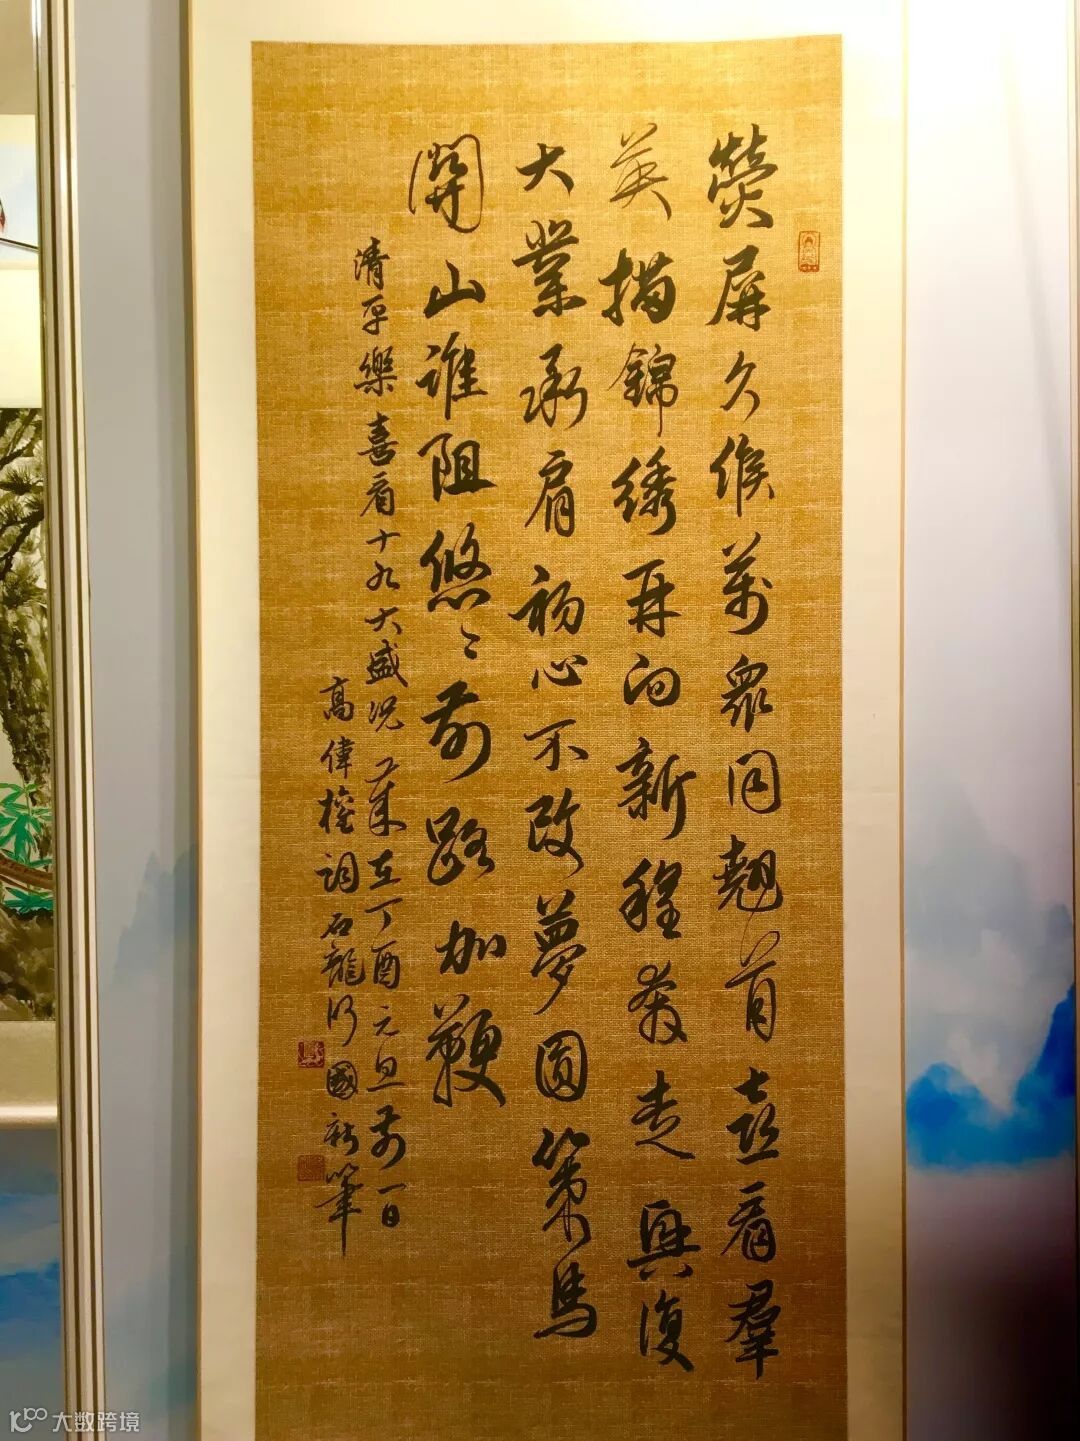 熒屏久候萬衆同翹首喜看羣
英描錦綉再向新程奔走興復
大業承肩初心不改夢圓策馬
開山誰阻悠〻前路加鞭
清平樂喜看十九大盛況 歲在丁酉元旦前一日
高偉權詞石龍國新筆
大数跨境